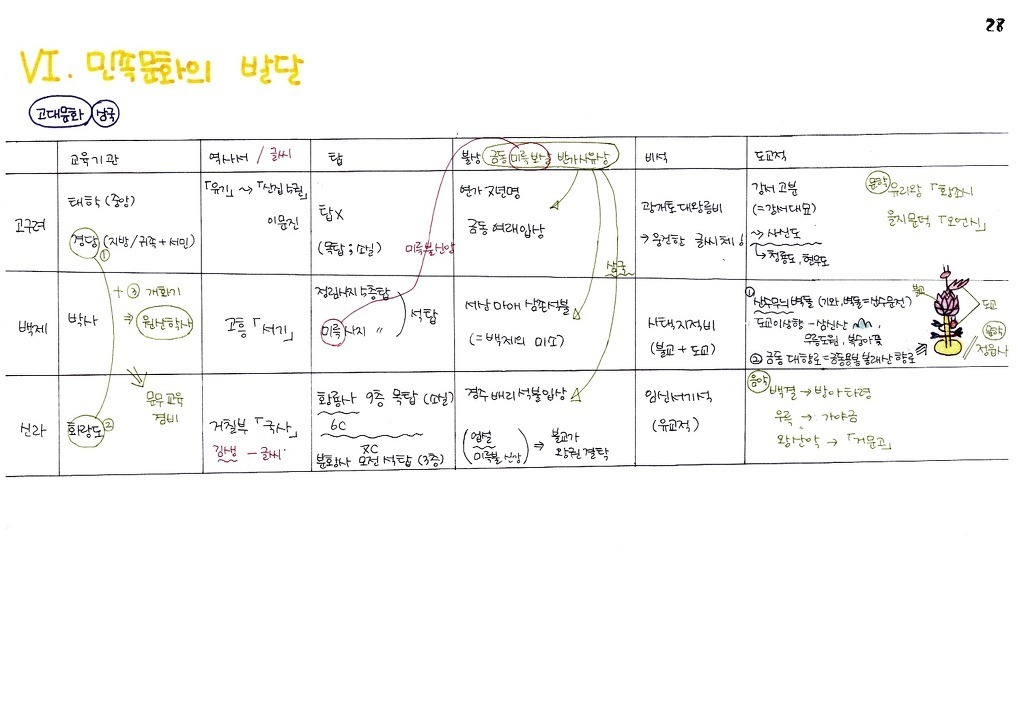 28
VI. 민족문화의 발달
고대문화 삼국
교육기관
역사서 / 글씨
탑
불상 금동 미륵보살 반가사유상
비석
도교적
고구려
태학 (중앙)
경당 (지방/귀족+서민)
①
「유기」 ~> 「신집 5권」
이문진
탑X
(목탑 ; 소실)
미륵불신앙
연가 7년명
금동 여래입상
삼국
광개토대왕릉비
→ 웅건한 글씨체
강서 고분
(=강서대묘)
~> 사신도
↳ 청룡도, 현무도
문학 유리왕 「황조가」
을지문덕 「오언시」
백제
+ ③ 개화기
박사 ⇒ 원산학사
고흥 「서기」
정림사지 5층탑
미륵사지 〃
석탑
서산 마애 삼존석불
(=백제의 미소)
사택지적비
(불교+도교)
① 산수무늬 벽돌 (기와, 벽돌=산수문전)
도교이상향 - 삼신산,
무릉도원, 복숭아꽃
② 금동 대향로 = 금동용봉봉래산 향로
불교
도교
문학
정읍사
신라
문무 교육
경비
화랑도 ②
거칠부 「국사」
김생 - 글씨
황룡사 9층 목탑 (소실)
6C
7C
분황사 모전 석탑 (3층)
경주 배리석불입상
(업설
미륵불 신앙) ⇒ 불교가
왕권 결탁
임신서기석
(유교적)
음악
백결 → 방아타령
우륵 → 가야금
왕산악 → 「거문고」